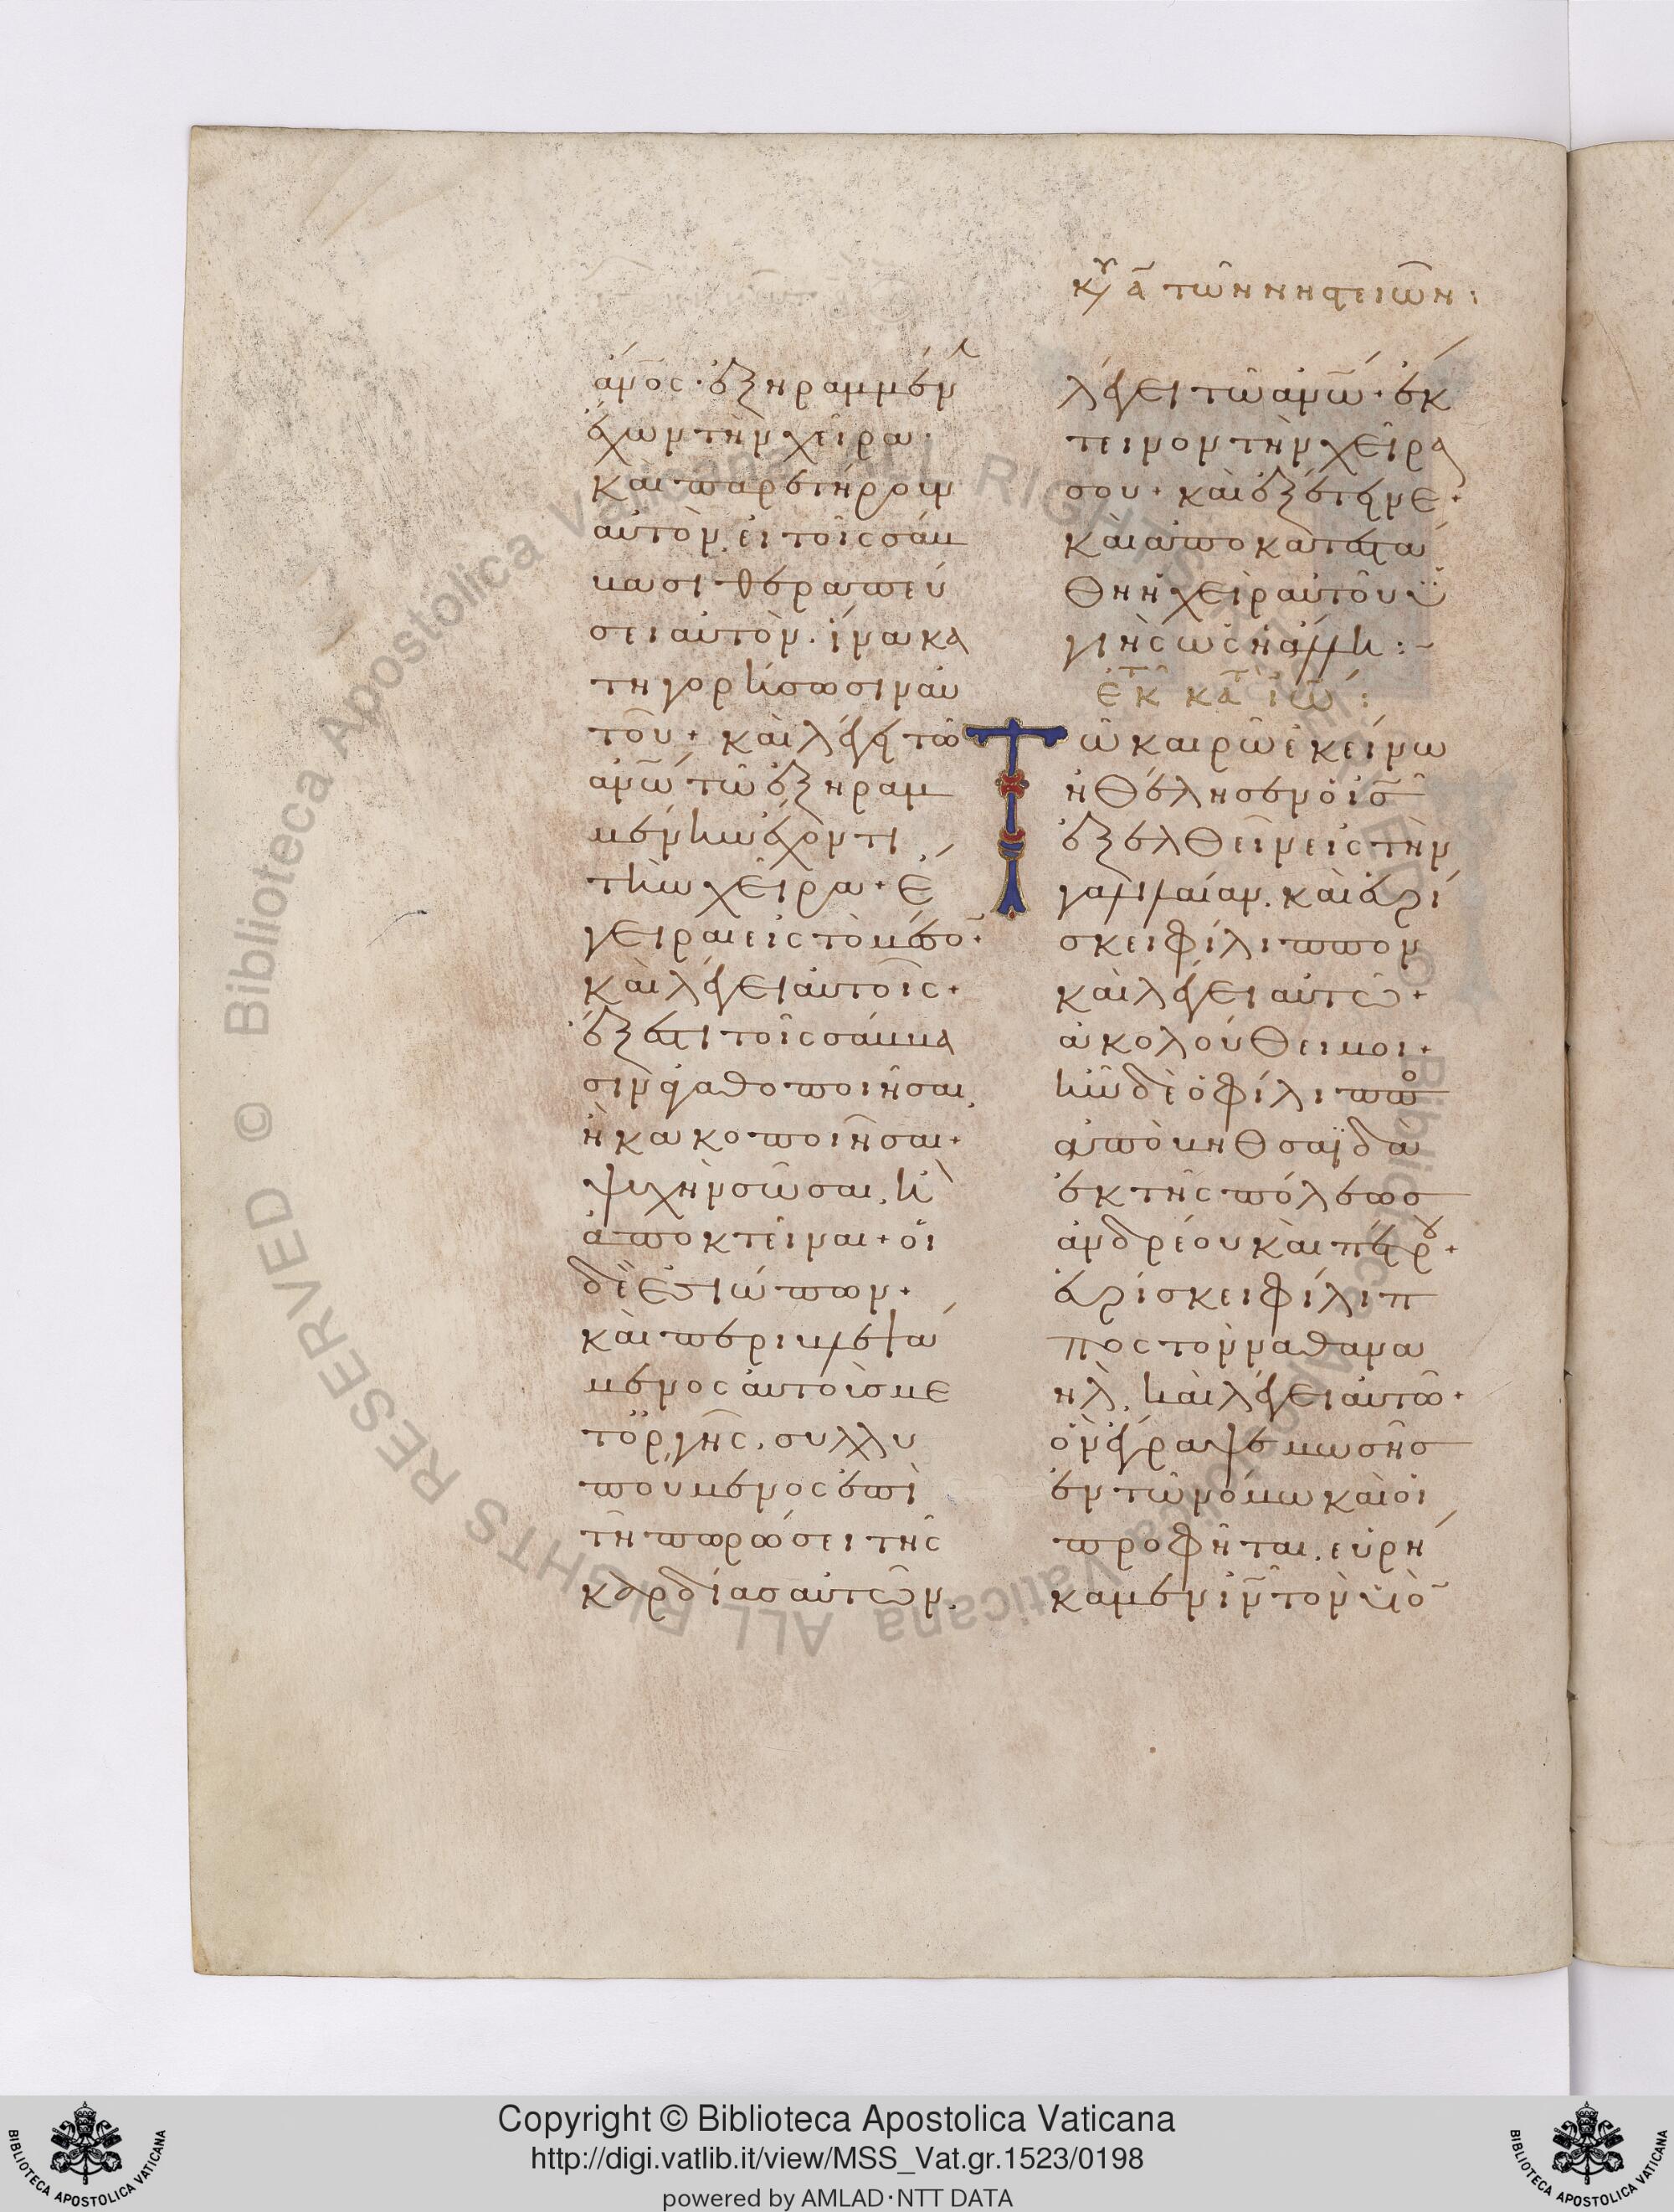 κυ α τῶν νηστειῶν:
ἄνος· ἐξηραμμέν
ἔχων τὴν χεῖρα·
και παρετήρουν
αὐτὸν, εἰ τοῖς σάβ
βασι θεραπεύ
σει αὐτὸν. ἵνα κα
τηγορήσωσιν αὐ
τοῦ· καὶ λέγει τῶ
ἀνῶ τῶ ἐξηραμ
μένην ἔχοντι
τὴν χεῖρα· ἔ
γειραι εἰς τὸ μέσο·
καὶ λέγει αὐτοῖς·
ἔξεστι τοῖς σάββα
σιν ἀγαθοποιῆσαι,
ἢ κακοποιῆσαι·
ψυχὴν σῶσαι, ἢ
ἀποκτεῖναι· οἱ
δὲ ἐσιώπων·
καὶ περιβλεψά
μενος αὐτοὺς με
τ ὀργῆς, συλλυ
πούμενος ἐπὶ
τῆ πωρώσει τῆς
καρδίας αὐτῶν,
λέγει τῶ ἀνῶ· ἔκ
τεινον τὴν χεῖρά
σου· καὶ ἐξέτεινε·
καὶ ἀποκατεστά
θη ἡ χεὶρ αὐτοῦ ὑ
γιὴς ὡς ἡ ἄλλη:~
ἐκ τ κατ ἰω:
Τῶ καιρῶ ἐκείνω
ἠθέλησεν ὁ ις
ἐξελθεῖν εἰς τὴν
γαλιλαίαν. καὶ εὑρί
σκει φίλιππον
καὶ λέγει αὐτῶ·
ἀκολούθει μοι·
ἦν δὲ ὁ φίλιππο
ἀπὸ βηθσαϊδά
ἐκ τῆς πόλεως
ἀνδρέου καὶ πέτρου·
εὑρίσκει φίλιπ
πος τὸν ναθανα
ὴλ, καὶ λέγει αὐτῶ·
ὃν ἔγραψε μωσῆς
ἐν τῶ νόμω καὶ οἱ
προφῆται, εὑρή
καμεν ιν τὸν υἱὸ
Copyright © Biblioteca Apostolica Vaticana
http://digi.vatlib.it/view/MSS_Vat.gr.1523/0198
powered by AMLAD·NTT DATA
BIBLIOTECA APOSTOLICA VATICANA
BIBLIOTECA APOSTOLICA VATICANA
© Biblioteca Apostolica Vaticana ALL RIGHTS RESERVED
© Biblioteca Apostolica Vaticana ALL RIGHTS RESERVED